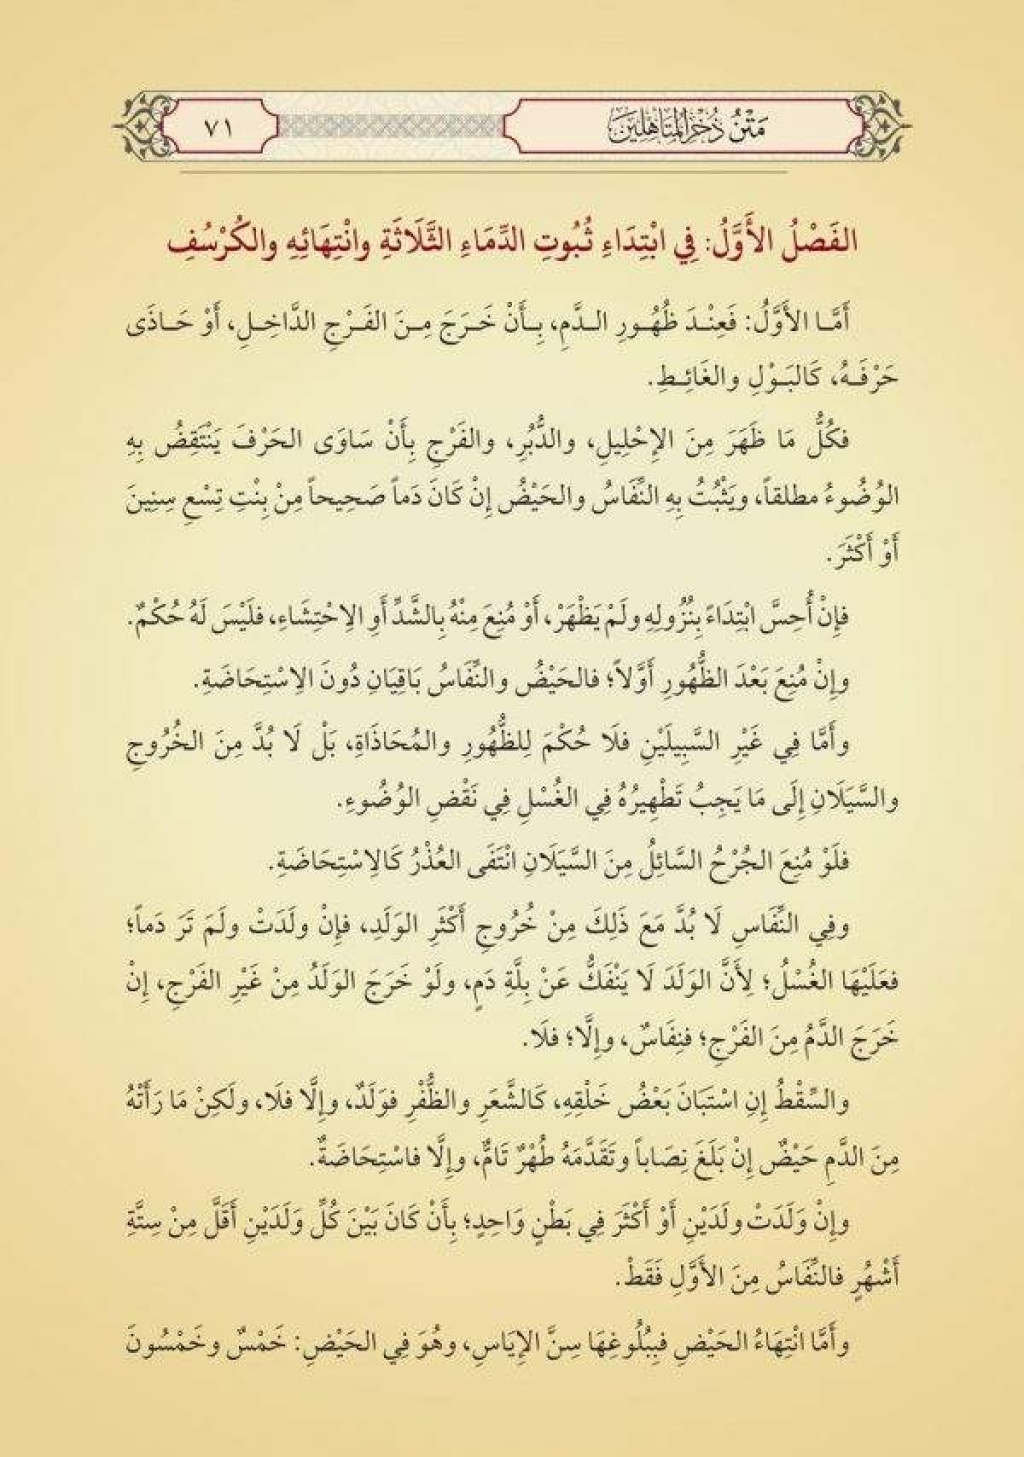 مَتْنُ ذُخْرِ المُتَأَهِّلِينَ
٧١
الفَصْلُ الأَوَّلُ: فِي ابْتِدَاءِ ثُبُوتِ الدِّمَاءِ الثَّلَاثَةِ وانْتِهَائِهِ والكُرْسُفِ
أَمَّا الأَوَّلُ: فَعِنْدَ ظُهُورِ الدَّمِ، بِأَنْ خَرَجَ مِنَ الفَرْجِ الدَّاخِلِ، أَوْ حَاذَى
حَرْفَهُ، كَالبَوْلِ والغَائِطِ.
فكُلُّ مَا ظَهَرَ مِنَ الإِحْلِيلِ، والدُّبُرِ، والفَرْجِ بِأَنْ سَاوَى الحَرْفَ يَنْتَقِضُ بِهِ
الوُضُوءُ مطلقاً، ويَثْبُتُ بِهِ النِّفَاسُ والحَيْضُ إِنْ كَانَ دَماً صَحِيحاً مِنْ بِنْتِ تِسْعِ سِنِينَ
أَوْ أَكْثَرَ.
فإِنْ أُحِسَّ ابْتِدَاءً بِنُزُولِهِ ولَمْ يَظْهَرْ، أَوْ مُنِعَ مِنْهُ بِالشَّدِّ أَوِ الاِحْتِشَاءِ، فلَيْسَ لَهُ حُكْمٌ.
وإِنْ مُنِعَ بَعْدَ الظُّهُورِ أَوَّلاً؛ فالحَيْضُ والنِّفَاسُ بَاقِيَانِ دُونَ الاِسْتِحَاضَةِ.
وأَمَّا فِي غَيْرِ السَّبِيلَيْنِ فلَا حُكْمَ لِلظُّهُورِ والمُحَاذَاةِ، بَلْ لَا بُدَّ مِنَ الخُرُوجِ
والسَّيَلَانِ إِلَى مَا يَجِبُ تَطْهِيرُهُ فِي الغُسْلِ فِي نَقْضِ الوُضُوءِ.
فلَوْ مُنِعَ الجُرْحُ السَّائِلُ مِنَ السَّيَلَانِ انْتَفَى العُذْرُ كَالاِسْتِحَاضَةِ.
وفِي النِّفَاسِ لَا بُدَّ مَعَ ذَلِكَ مِنْ خُرُوجِ أَكْثَرِ الوَلَدِ، فإِنْ ولَدَتْ ولَمَ تَرَ دَماً؛
فعَلَيْهَا الغُسْلُ؛ لِأَنَّ الوَلَدَ لَا يَنْفَكُّ عَنْ بِلَّةِ دَمٍ، ولَوْ خَرَجَ الوَلَدُ مِنْ غَيْرِ الفَرْجِ، إِنْ
خَرَجَ الدَّمُ مِنَ الفَرْجِ؛ فنِفَاسٌ، وإِلَّا؛ فلَا.
والسِّقْطُ إِنِ اسْتَبَانَ بَعْضُ خَلْقِهِ، كَالشَّعَرِ والظُّفْرِ فوَلَدٌ، وإِلَّا فلَا، ولَكِنْ مَا رَأَتْهُ
مِنَ الدَّمِ حَيْضٌ إِنْ بَلَغَ نِصَاباً وتَقَدَّمَهُ طُهْرٌ تَامٌّ، وإِلَّا فاسْتِحَاضَةٌ.
وإِنْ وَلَدَتْ ولَدَيْنِ أَوْ أَكْثَرَ فِي بَطْنٍ وَاحِدٍ؛ بِأَنْ كَانَ بَيْنَ كُلِّ وَلَدَيْنِ أَقَلَّ مِنْ سِتَّةِ
أَشْهُرٍ فالنِّفَاسُ مِنَ الأَوَّلِ فَقَطْ.
وأَمَّا انْتِهَاءُ الحَيْضِ فبِبُلُوغِهَا سِنَّ الإِيَاسِ، وهُوَ فِي الحَيْضِ: خَمْسٌ وخَمْسُونَ